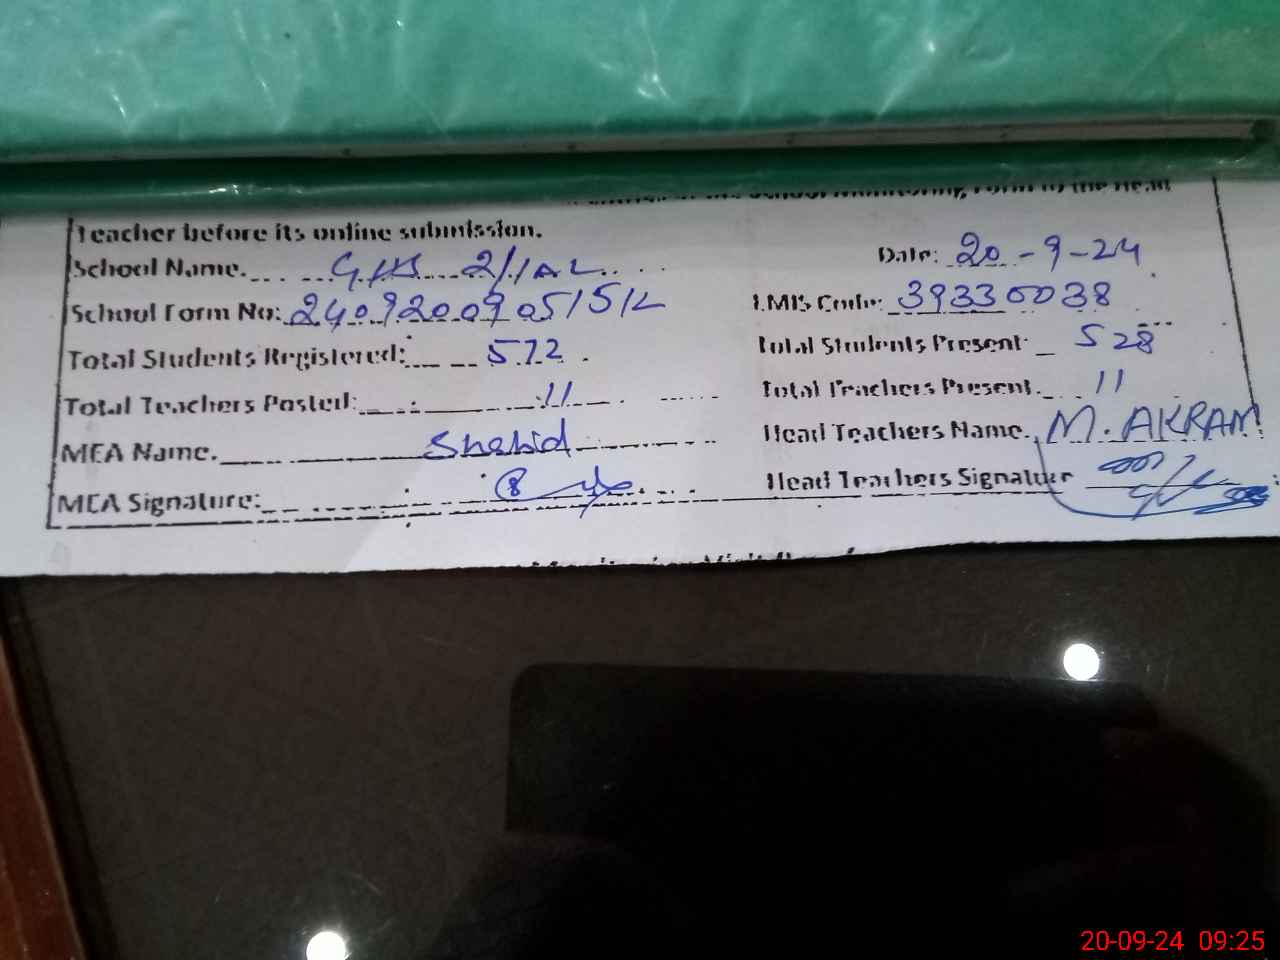 School Monitoring Form to the Head
Teacher before its online submission.
School Name. GHS 2/1AL Date: 20-9-24
School Form No: EMIS Code: 39330038
Total Students Registered: 572 Total Students Present 528
Total Teachers Posted: 11 Total Teachers Present. 11
MEA Name. Shahid Head Teachers Name. M. AKRAM
MEA Signature: Head Teachers Signature
20-09-24 09:25